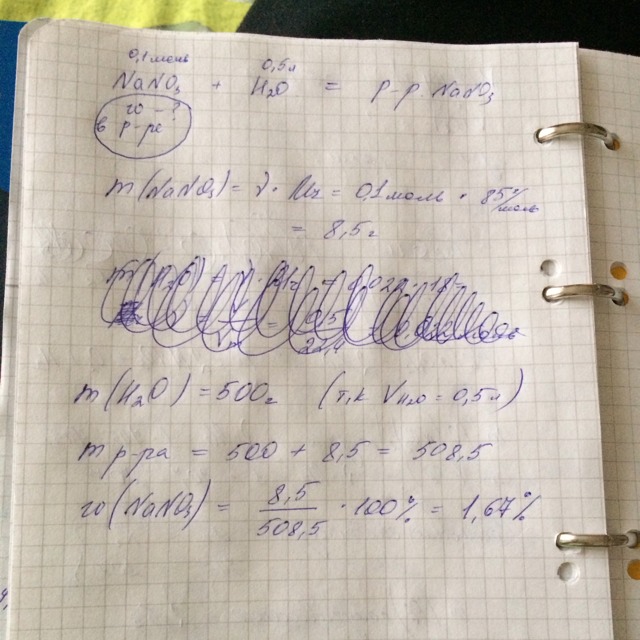 0,1 моль 0,5 л
NaNO₃ + H₂O = р-р NaNO₃
w - ?
в р-ре
m(NaNO₃) = ν · Mr = 0,1 моль · 85 г/моль
= 8,5 г
m(H₂O) = 500 г (т.к V H₂O = 0,5 л)
m р-ра = 500 + 8,5 = 508,5
w(NaNO₃) = 8,5/508,5 · 100% = 1,67%